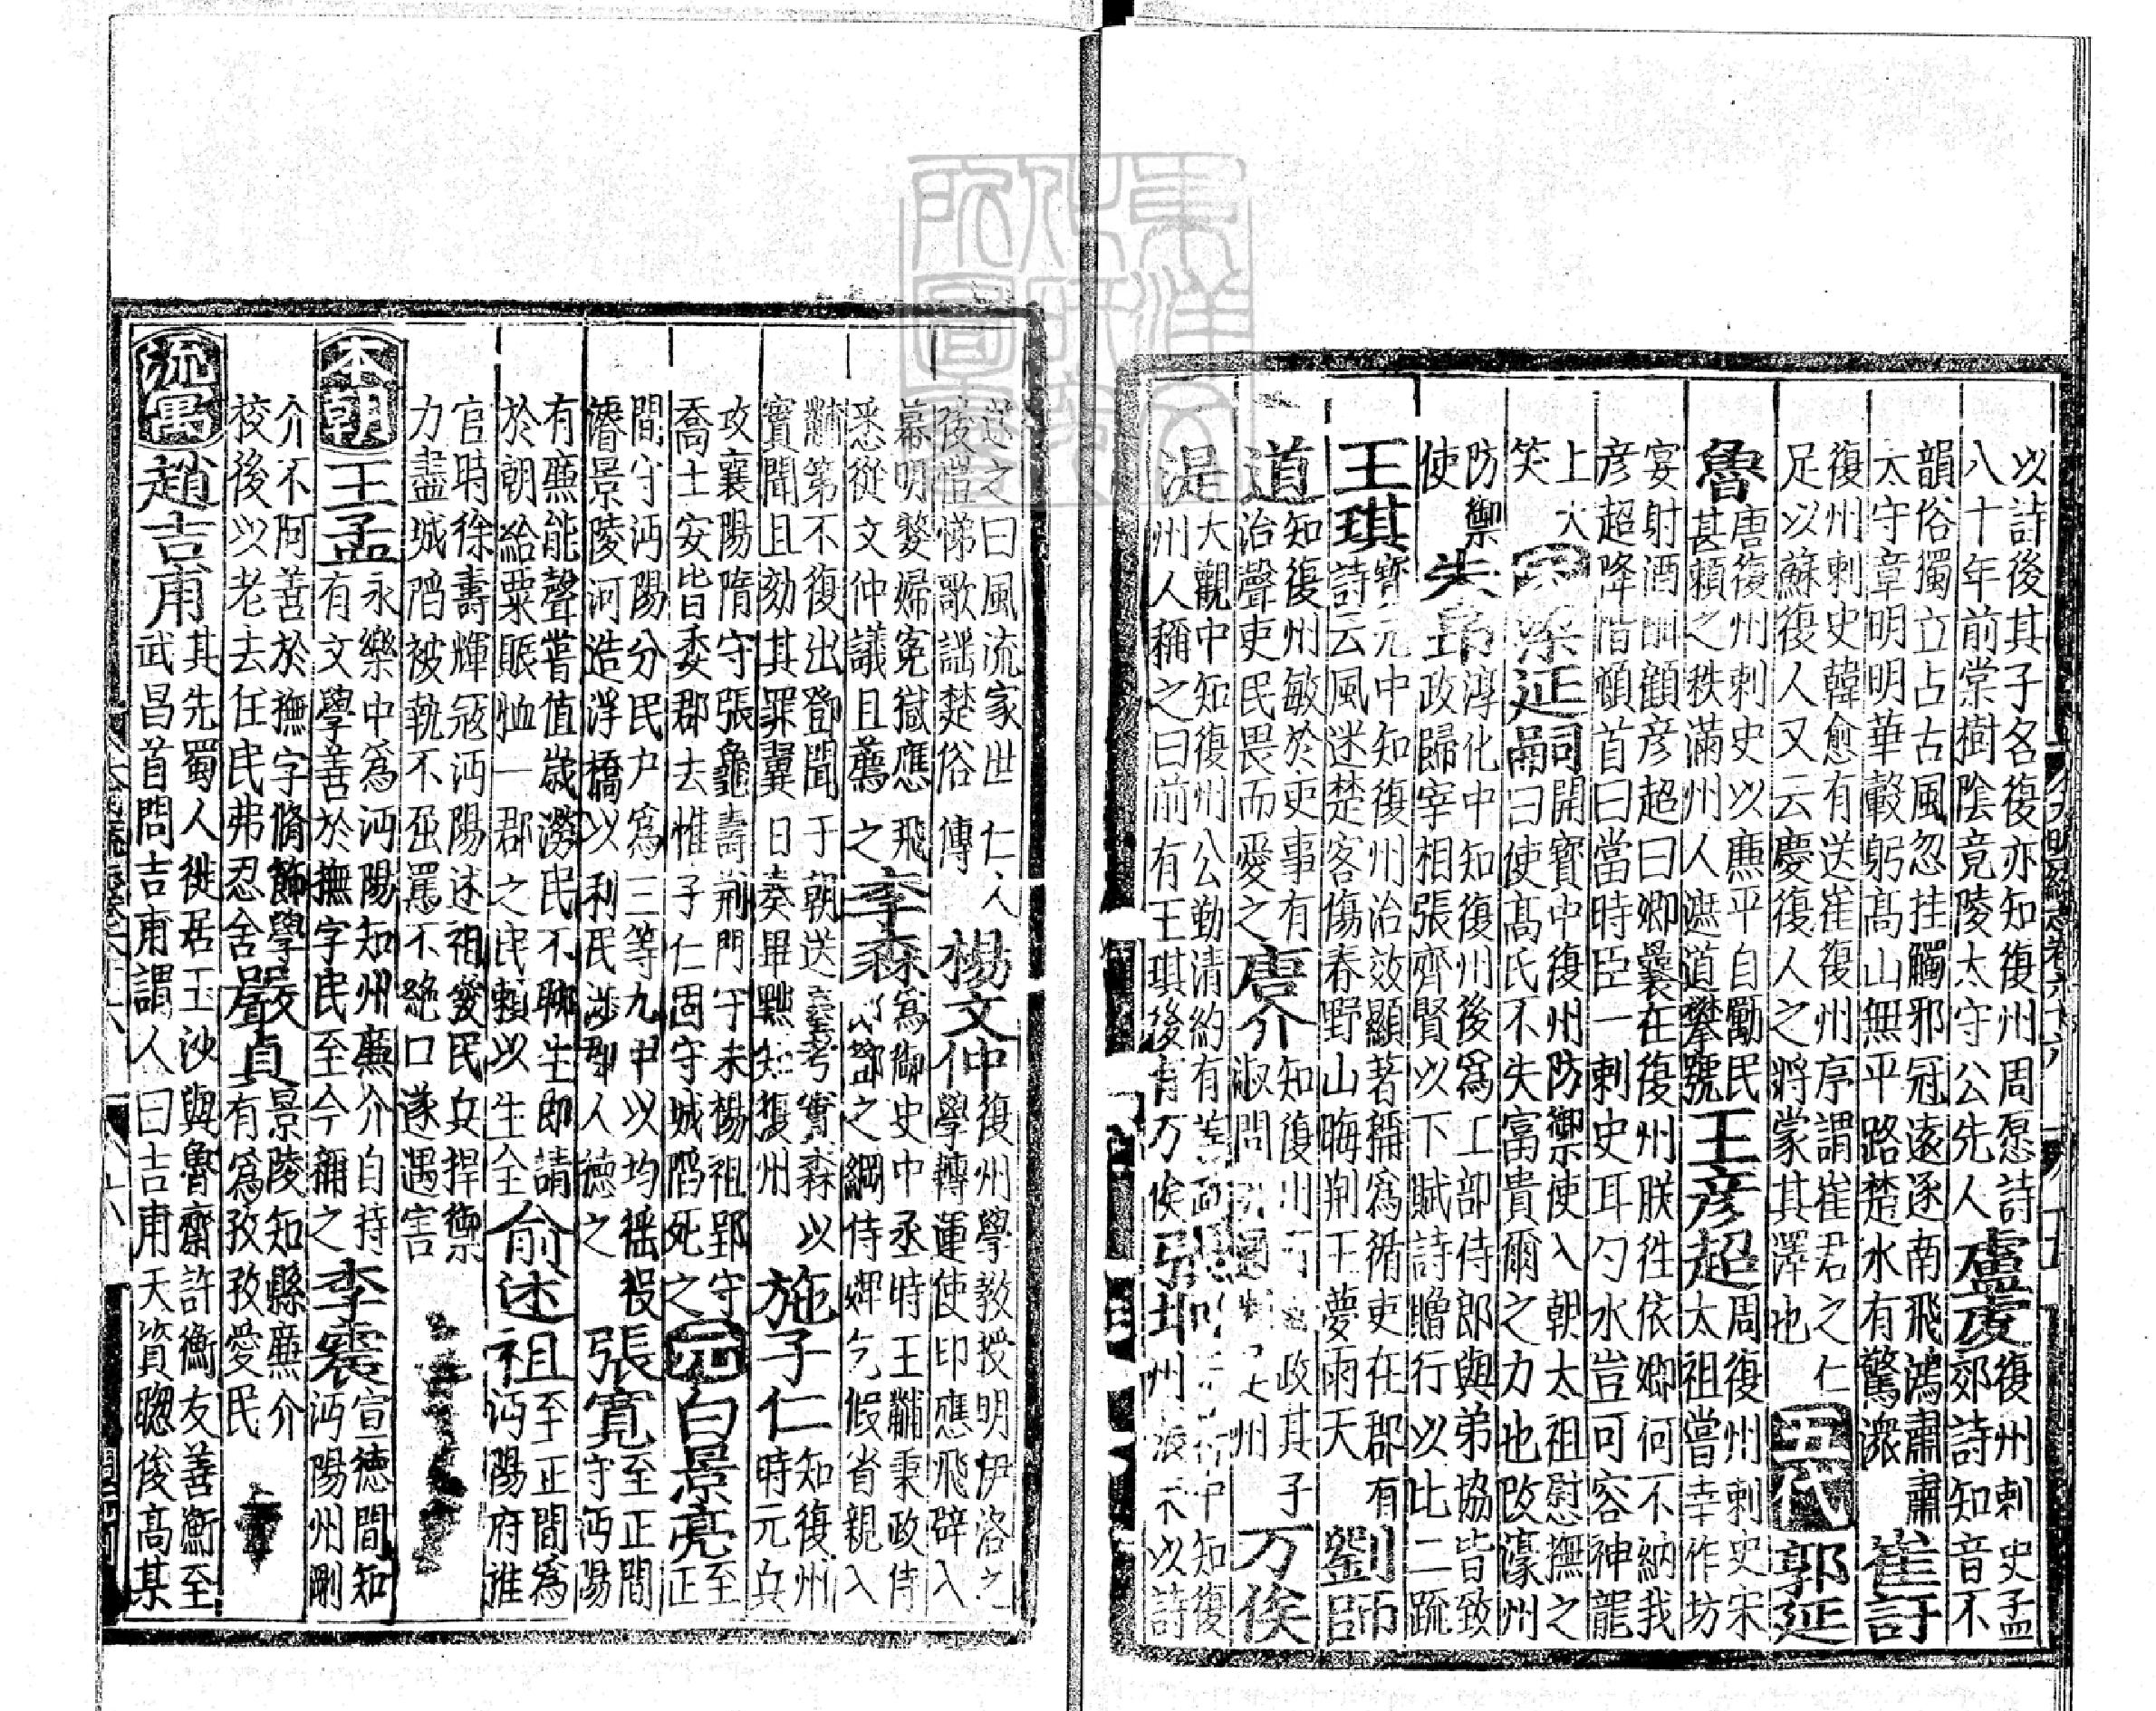 以詩後其子名復亦知復州周愿詩
八十年前棠樹陰竟陵太守公先人
盧虔
復州刺史孟
郊詩知音不
韻俗獨立占古風忽挂觸邪冠逺逐南飛鴻肅肅
太守章明明華轂躬髙山無平路楚水有驚湍
崔訏
復州刺史韓愈有送崔復州序謂崔君之仁
足以蘇復人又云慶復人之將蒙其澤也
五代
郭延
魯
唐復州刺史以亷平自勵民
甚賴之秩滿州人遮道攀號
王彦超
周復州刺史宋
太祖嘗幸作坊
宴射酒酣顧彦超曰卿曩在復州朕徃依卿何不納我
彦超降階頓首曰當時臣一刺史耳勺水豈可容神龍
上大
笑
宋
梁延嗣
開寳中復州防禦使入朝太祖慰撫之
曰使髙氏不失富貴爾之力也改濠州
防禦
使
朱昂
淳化中知復州後爲工部侍郎與弟協皆致
政歸宰相張齊賢以下賦詩贈行以比二疏
王琪
寳元中知復州治效顯著稱爲循吏在郡有
詩云風迷楚客傷春野山晦荆王夢雨天
劉師
道
知復州敏於吏事有
治聲吏民畏而愛之
唐介
知復州 政其子
淑問 州
万俟
湜
大觀中知復州公勤清約有善政
州人稱之曰前有王琪後有万俟
張
中知復
州 以詩
送之曰風流家世仁人
後愷悌歌謡楚俗傳
楊文仲
復州學教授明伊洛之
學轉運使印應飛辟入
幕明婺婦寃獄應飛
悉從文仲議且薦之
李森
爲御史中丞時王黼秉政侍
之綱侍婢乞假省親入
黼第不復出鄧聞于朝送臺考實森以
實聞且劾其罪翼日奏畢黜知復州
施子仁
知復州
時元兵
攻襄陽隋守張龜壽荆門守未楊祖郢守
喬士安皆委郡去惟子仁固守城䧟死之
元
白景亮
至
正
間守沔陽分民户爲三等九甲以均徭役
濬景陵河造浮橋以利民渉郡人德之
張寛
至正間
守沔陽
有亷能聲嘗值歳澇民不聊生即請
於朝給粟賑恤一郡之民賴以生全
俞述祖
至正間爲
沔陽府推
官時徐壽輝冦沔陽述祖發民兵捍禦
力盡城䧟被執不屈罵不絶口遂遇害
本朝
王孟
永樂中爲沔陽知州亷介自持
有文學善於撫字民至今稱之
李震
宣德間知
沔陽州剛
介不阿善於撫字脩飾學
校後以老去任民弗忍舍
嚴貞
景陵知縣亷介
有爲孜孜愛民
流寓
趙吉甫
其先蜀人徙居玉沙與魯齋許衡友善衡至
武昌首問吉甫謂人曰吉甫天資聰俊髙某